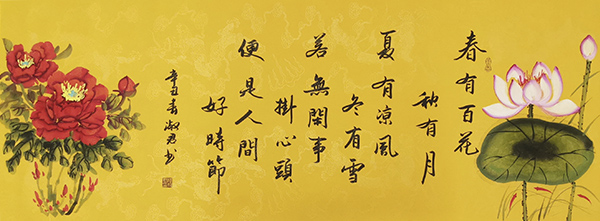 春有百花
秋有月
夏有涼風
冬有雪
若無閑事
掛心頭
便是人間
好時節
辛丑春淑君书